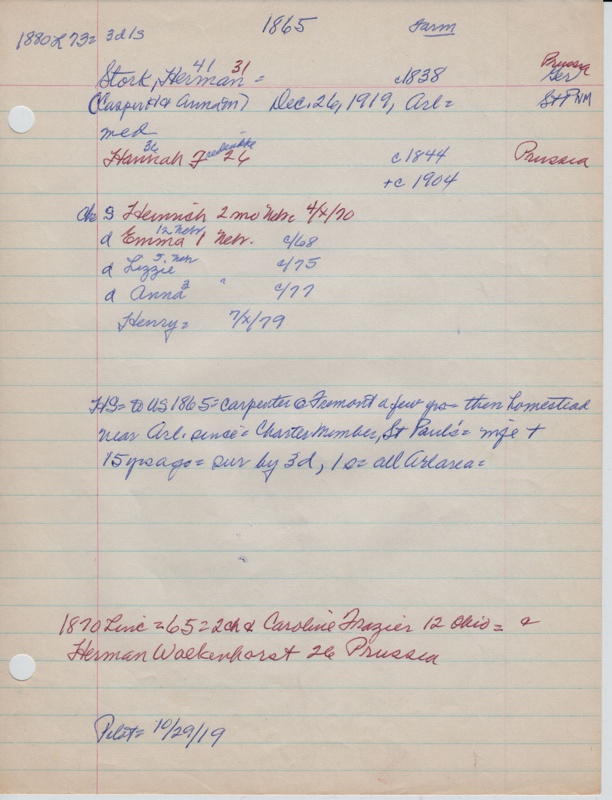 1865 Farm
1880 L 73= 3d1s
41 31 Prussia
Stork, Herman = c1838 Ger
(Casper + & Anna (m) Dec. 26, 1919, Arl= St P NM
med
36
Hannah Fredericke 26 c1844 Prussia
+c 1904
Ch s Heinrich 2 mo Nebr. 4/x/70
12 Nebr
d Emma 1 Nebr. c/68
5. Nebr
d Lizzie c/75
3 "
d Anna c/77
Henry= 7/x/79
HS= to US 1865= carpenter @ Fremont a few yrs= then homestead
near Arl. since= Charter Member, St Paul's= wife +
15 yrs ago= sur by 3d, 1 s= all Arl area=
1870 Linc = 65= 2ch & Caroline Frazier 12 Ohio= &
Herman Wolkenhorst 26 Prussia
Pilot= 10/29/19